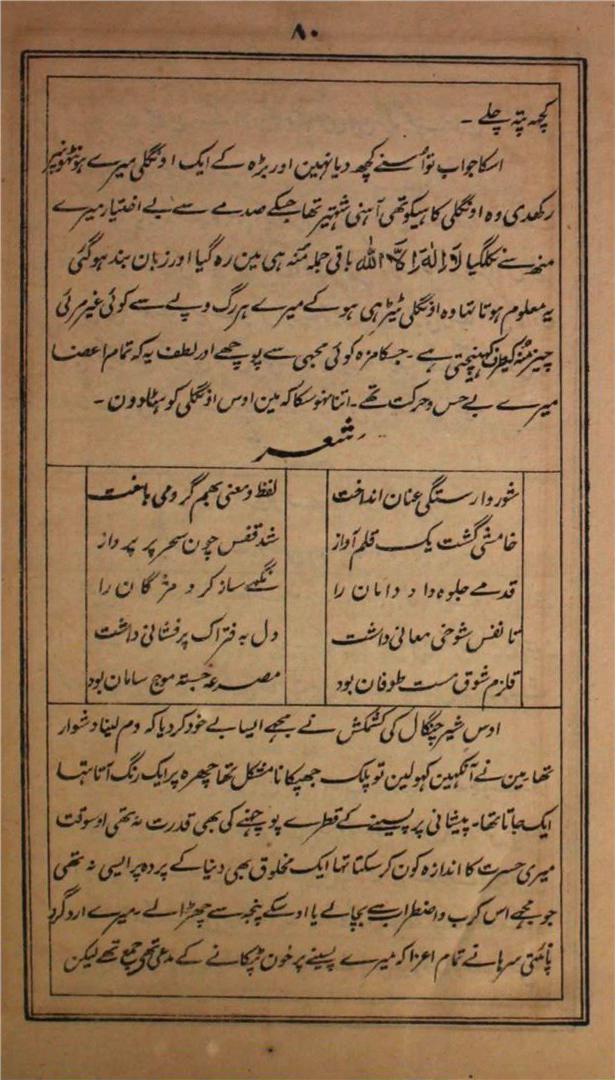 ۸۰
کچہ پتہ چلے ۔
اسکا جواب تو اُسنے کچھ دیا نہین اور بڑہ کے ایک اونگلی میرے ہونٹھونپر
رکھدی وہ اونگلی کا ہیکو تھی آہنی شہتیر تھا جسکے صدمے سے بے اختیار میرے
منھ سے نکلگیا لا الٰہ الا اللہ باقی جملہ منہ ہی مین رہ گیا اور زبان بند ہو گئی
یہ معلوم ہوتا تہا وہ اونگلی ٹیڑہی ہو کے میرے ہر رگ و پے سے کوئی غیر مرئی
چیز منہ کیطرف کہینچتی ہے ۔ جسکا مزہ کوئی مجہی سے پوچھے اور لطف یہ کہ تمام اعضا
میرے بے حس و حرکت تھے ۔ اتنا نہو سکا کہ مین اوس اونگلی کو ہٹا دون ۔
شعر
شور وارستگی عنان انداخت لفظ و معنی بہم گرومی باخت
خامشی گشت یک قلم آواز شد قفس چون سحر پر پرواز
قدمے جلوہ داد دامان را نگہے ساز کرد مژگان را
تا نفس شوخی معانی داشت دل بہ فتراک پرفشانی داشت
قلزم شوق مست طوفان بود مصرعہ جستہ موج سامان بود
اوس شیر چنگال کی کشمکش نے مجہے ایسا بے خود کر دیا کہ دم لینا دشوار
تھا مین نے آنکہین کہولین تو پلک جھپکانا مشکل تھا چہرہ پر ایک رنگ آتا تہا
ایک جاتا تھا ۔ پیشانی پر پسینے کے قطرے پوچہنے کی بھی قدرت نہ تھی اوسوقت
میری حسرت کا اندازہ کون کر سکتا تہا ایک مخلوق بھی دنیا کے پردہ پر ایسی نہ تھی
جو مجہے اس کرب و اضطراب سے بچالے یا اوسکے پنجہ سے چھڑالے ۔ میرے ارد گرد
پائنتی سرہانے تمام اعزا کہ میرے پسینے پر خون ٹپکانے کے مدعی تھے جمع تھے لیکن